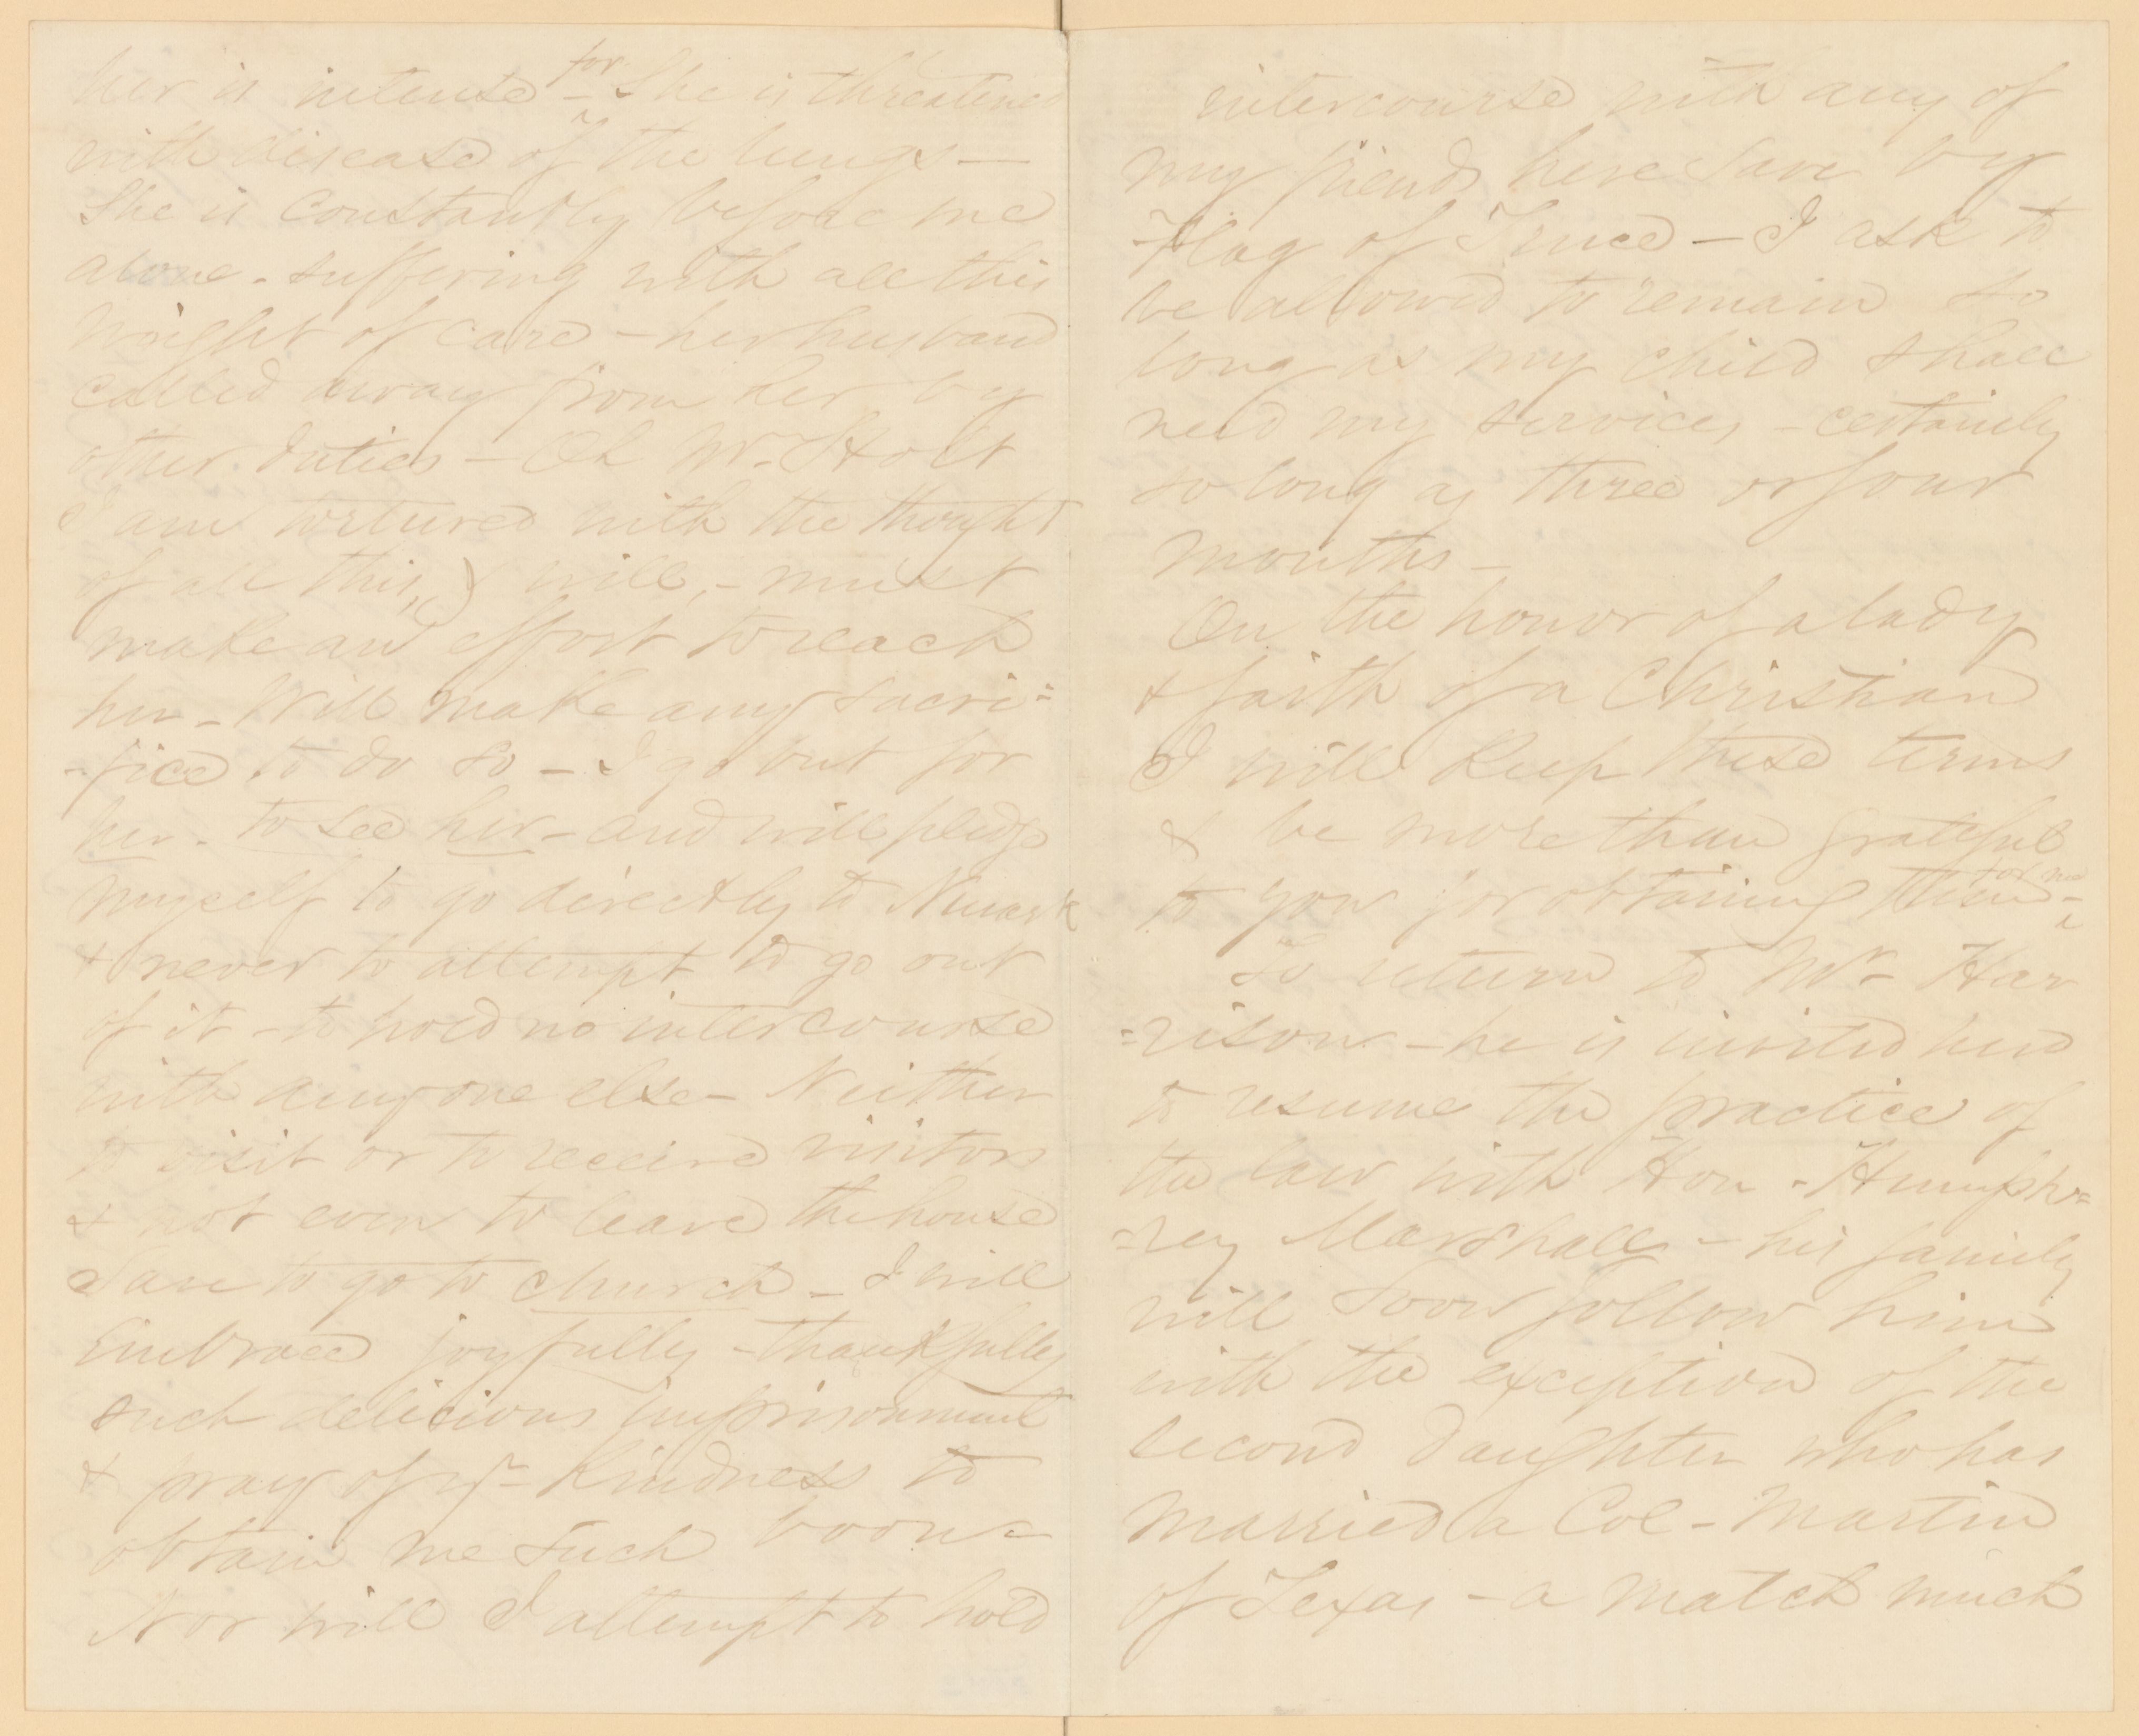 her is intense - for she is threatened
with disease of the lungs —
She is constantly before me
alone - suffering with all this
weight of care - her husband
called away from her by
other duties - Oh Mr. Holt
I am tortured with the thought
of all this, I will, - must
make an effort to reach
her - Will make any sacri=
-fice to do so - I go but for
her - to see her - and will pledge
myself to go directly to Newark
& never to attempt to go out
of it - to hold no intercourse
with anyone else - Neither
to visit or to receive visitors
& not even to leave the house
Save to go to church - I will
Embrace joyfully - thankfully
such delicious imprisonment
& pray of yr kindness to
obtain me such boon -
Nor will I attempt to hold
intercourse with any of
my friends here save by
Flag of Truce - I ask to
be allowed to remain so
long as my child shall
need my services - certainly
so long as three or four
months -
On the honor of a lady
& faith of a Christian
I will keep these terms
& be more than grateful
to you for obtaining them for me -
To return to Mr Har
=rison - he is invited here
to resume the practice of
the law with Hon - Humph=
=rey Marshall - his family
will soon follow him
with the exception of the
second daughter who has
married a Col - Martin
of Texas - a match much